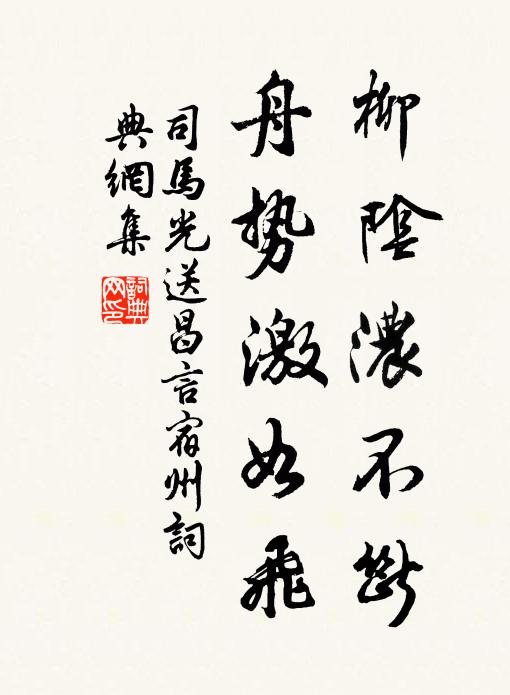 柳陰濃不斷
舟勢激如飛
司馬光送昌言宿州詞
典網集
詞典网印